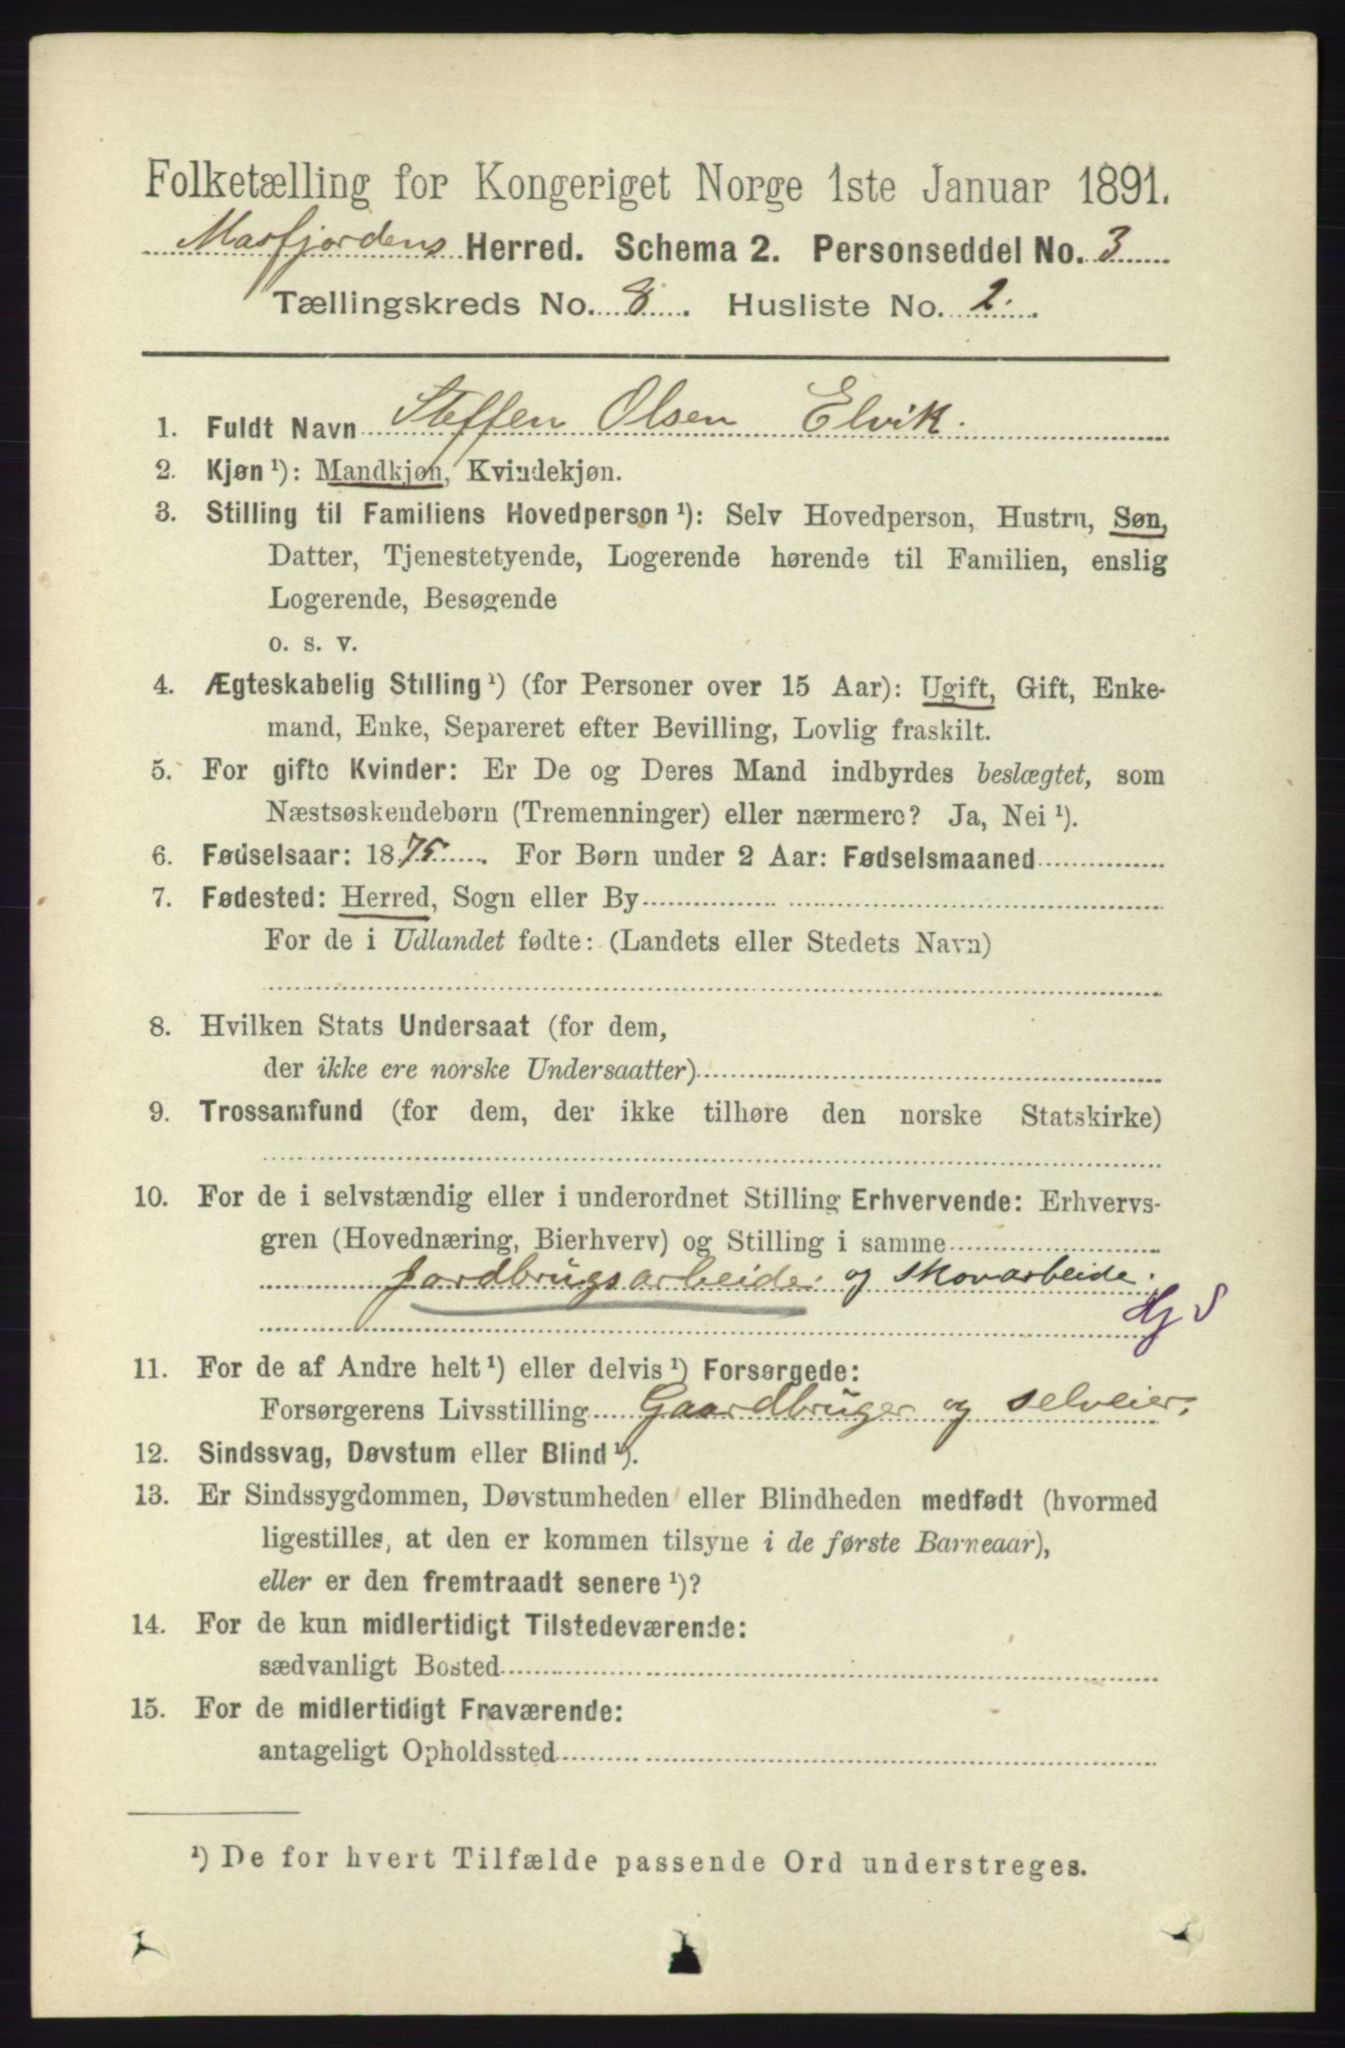 Folketælling for Kongeriget Norge 1ste Januar 1891.
Masfjordens Herred. Schema 2. Personseddel No. 3
Tællingskreds No. 8. Husliste No. 2.
1. Fuldt Navn Steffen Olsen Elvik.
2. Kjøn ¹): Mandkjøn, Kvindekjøn.
3. Stilling til Familiens Hovedperson ¹): Selv Hovedperson, Hustru, Søn,
Datter, Tjenestetyende, Logerende hørende til Familien, enslig
Logerende, Besøgende
o. s. v.
4. Ægteskabelig Stilling ¹) (for Personer over 15 Aar): Ugift, Gift, Enke-
mand, Enke, Separeret efter Bevilling, Lovlig fraskilt.
5. For gifte Kvinder: Er De og Deres Mand indbyrdes beslægtet, som
Næstsøskendebørn (Tremenninger) eller nærmere? Ja, Nei ¹).
6. Fødselsaar: 1875. For Børn under 2 Aar: Fødselsmaaned
7. Fødested: Herred, Sogn eller By
For de i Udlandet fødte: (Landets eller Stedets Navn)
8. Hvilken Stats Undersaat (for dem,
der ikke ere norske Undersaatter)
9. Trossamfund (for dem, der ikke tilhøre den norske Statskirke)
10. For de i selvstændig eller i underordnet Stilling Erhvervende: Erhvervs-
gren (Hovednæring, Bierhverv) og Stilling i samme
Jordbrugsarbeide og skovarbeide.
Hj S
11. For de af Andre helt ¹) eller delvis ¹) Forsørgede:
Forsørgerens Livsstilling Gaardbruger og selveier.
12. Sindssvag, Døvstum eller Blind ¹).
13. Er Sindssygdommen, Døvstumheden eller Blindheden medfødt (hvormed
ligestilles, at den er kommen tilsyne i de første Barneaar),
eller er den fremtraadt senere ¹)?
14. For de kun midlertidigt Tilstedeværende:
sædvanligt Bosted
15. For de midlertidigt Fraværende:
antageligt Opholdssted
¹) De for hvert Tilfælde passende Ord understreges.